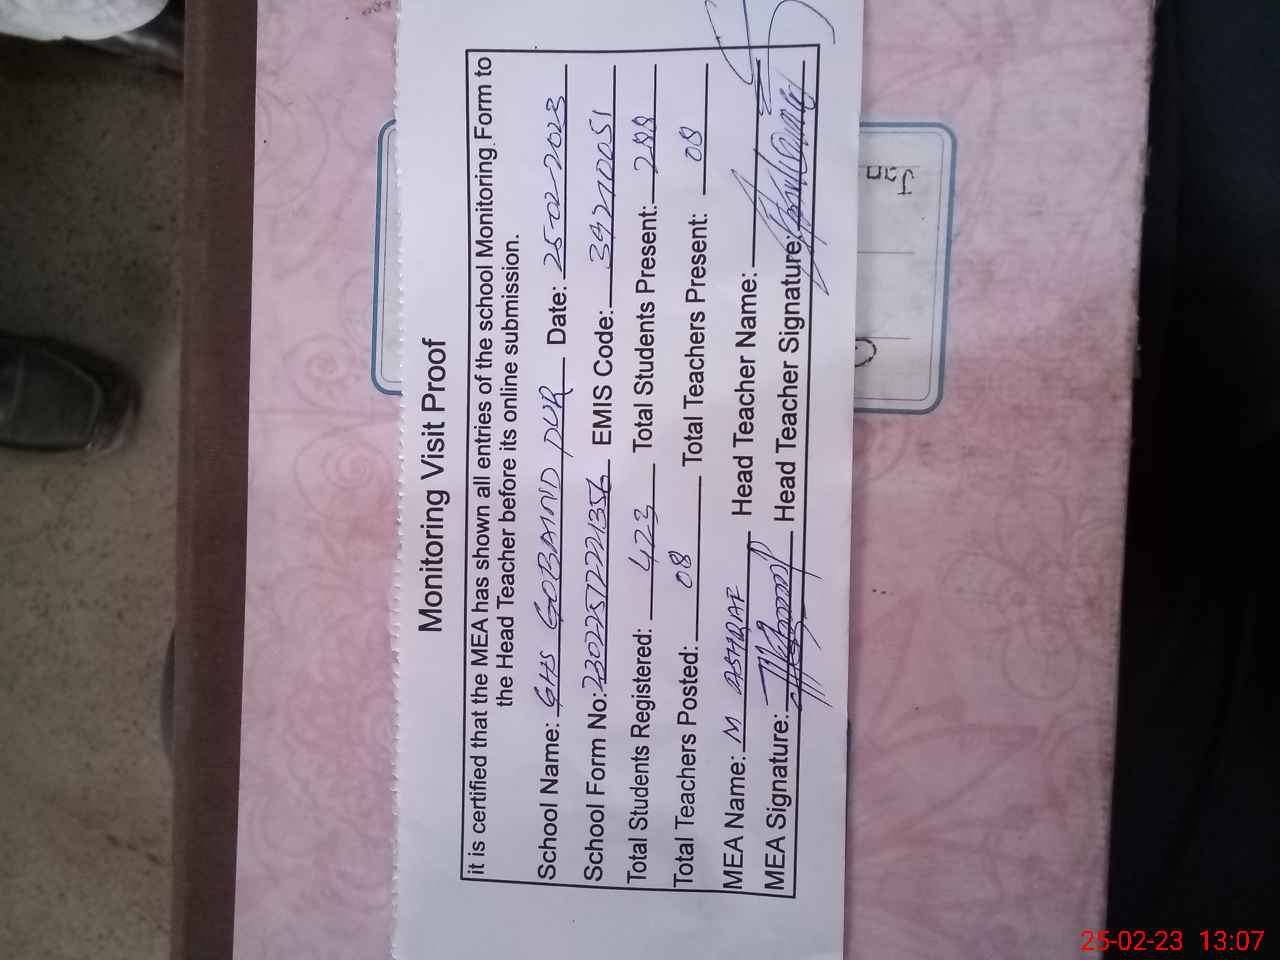 Monitoring Visit Proof
it is certified that the MEA has shown all entries of the school Monitoring Form to
the Head Teacher before its online submission.
School Name: GHS GOBAIND PUR Date: 25-02-2023
School Form No: 230225122221356 EMIS Code: 39210051
Total Students Registered: 423 Total Students Present: 288
Total Teachers Posted: 08 Total Teachers Present: 08
MEA Name: M ASHRAF Head Teacher Name:
MEA Signature: Head Teacher Signature:
Jan
25-02-23 13:07